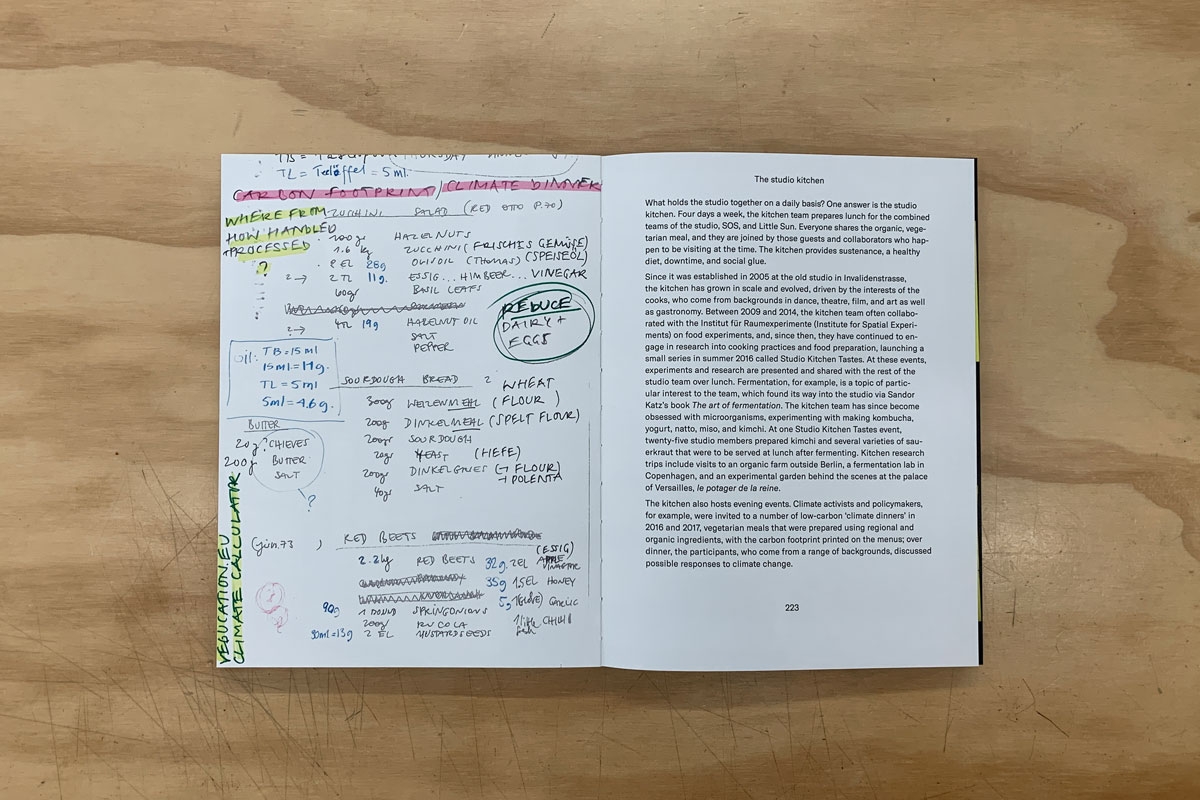 TL = Teelöffel = 5 ml.
CARBON FOOTPRINT / CLIMATE DINNER
WHERE FROM
HOW HANDLED
PROCESSED
?
ZUCCHINI SALAD (RED OTTO P.70)
200g HAZELNUTS
1.6 kg ZUCCHINI (FRISCHES GEMÜSE)
2 EL 28g OLIVOIL (THOMAS) (SPEISEÖL)
2 → 2 TL 11g. ESSIG... HIMBEER... VINEGAR
60gr BASIL LEAFS
2 → 4TL 19g HAZELNUT OIL
SALT
PEPPER
REDUCE
DAIRY +
EGGS
Oil: TB = 15 ml
15 ml = 14g.
TL = 5 ml
5 ml = 4.6 g.
SOURDOUGH BREAD 2
300g WEIZENMEHL (WHEAT FLOUR)
200g DINKELMEHL (SPELT FLOUR)
200gr SOURDOUGH
20g YEAST (HEFE)
200gr DINKELGRIES (→ FLOUR)
→ POLENTA
40gr SALT
BUTTER
20g? CHIEVES
200g BUTTER
SALT
?
VEGUCATION.EU
CLIMATE CALCULATOR
RED BEETS
2.2kg RED BEETS
90g 1 BUND SPRINGONIONS
200gr RUCOLA
2 EL MUSTARDSEEDS
(ESSIG)
32g. 2EL APPLE VINEGAR
35g 1,5EL HONEY
5g GARLIC
1 little CHILI
The studio kitchen
What holds the studio together on a daily basis? One answer is the studio
kitchen. Four days a week, the kitchen team prepares lunch for the combined
teams of the studio, SOS, and Little Sun. Everyone shares the organic, vege-
tarian meal, and they are joined by those guests and collaborators who hap-
pen to be visiting at the time. The kitchen provides sustenance, a healthy
diet, downtime, and social glue.
Since it was established in 2005 at the old studio in Invalidenstrasse,
the kitchen has grown in scale and evolved, driven by the interests of the
cooks, who come from backgrounds in dance, theatre, film, and art as well
as gastronomy. Between 2009 and 2014, the kitchen team often collabo-
rated with the Institut für Raumexperimente (Institute for Spatial Experi-
ments) on food experiments, and, since then, they have continued to en-
gage in research into cooking practices and food preparation, launching a
small series in summer 2016 called Studio Kitchen Tastes. At these events,
experiments and research are presented and shared with the rest of the
studio team over lunch. Fermentation, for example, is a topic of partic-
ular interest to the team, which found its way into the studio via Sandor
Katz's book The art of fermentation. The kitchen team has since become
obsessed with microorganisms, experimenting with making kombucha,
yogurt, natto, miso, and kimchi. At one Studio Kitchen Tastes event,
twenty-five studio members prepared kimchi and several varieties of sau-
erkraut that were to be served at lunch after fermenting. Kitchen research
trips include visits to an organic farm outside Berlin, a fermentation lab in
Copenhagen, and an experimental garden behind the scenes at the palace
of Versailles, le potager de la reine.
The kitchen also hosts evening events. Climate activists and policymakers,
for example, were invited to a number of low-carbon 'climate dinners' in
2016 and 2017, vegetarian meals that were prepared using regional and
organic ingredients, with the carbon footprint printed on the menus; over
dinner, the participants, who come from a range of backgrounds, discussed
possible responses to climate change.
223